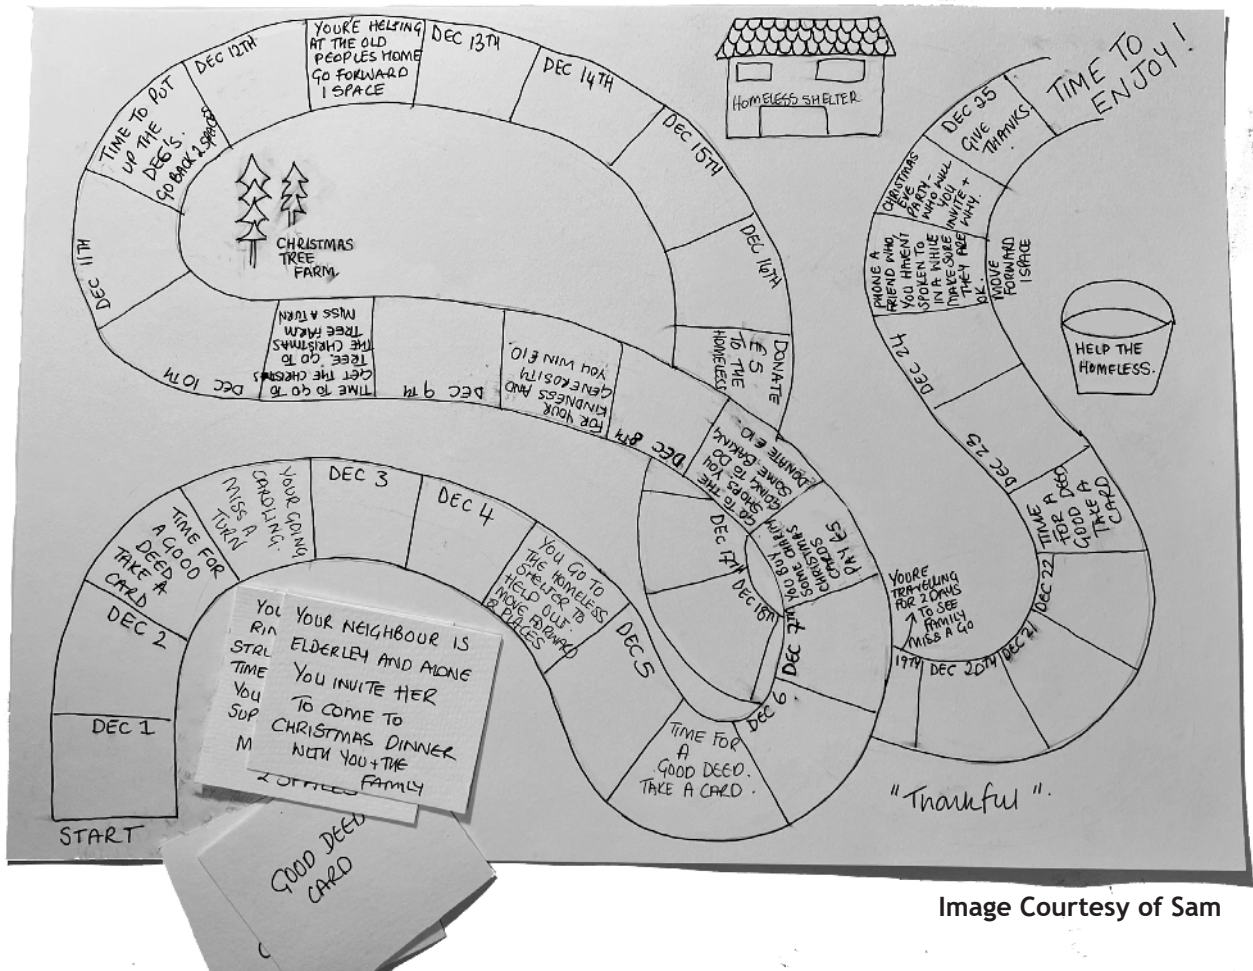 START
DEC 1
DEC 2
TIME FOR
A GOOD
DEED
TAKE A
CARD
YOUR GOING
CAROLING.
MISS A
TURN
DEC 3
DEC 4
YOU GO TO
THE HOMELESS
SHELTER TO
HELP OUT.
MOVE FORWARD
2 PLACES
DEC 5
TIME FOR
A
GOOD DEED.
TAKE A CARD.
DEC 6.
DEC 7TH
YOU BUY
SOME CHARITY
CHRISTMAS
CARDS
PAY £5
GO TO THE
SHOPS YOU
GOING TO DO
SOME BAKING
DONATE £10.
DEC 8TH
FOR YOUR
KINDNESS AND
GENEROSITY
YOU WIN £10
DEC 9TH
TIME TO GO TO
GET THE CHRISTMAS
TREE. GO TO
THE CHRISTMAS
TREE FARM
MISS A TURN
DEC 10TH
DEC 11TH
TIME TO PUT
UP THE
DEG'S.
GO BACK 2 SPACES
DEC 12TH
YOURE HELPING
AT THE OLD
PEOPLES HOME
GO FORWARD
1 SPACE
DEC 13TH
DEC 14TH
DEC 15TH
DEC 16TH
DONATE
£5
TO THE
HOMELESS
DEC 17TH
DEC 18TH
19TH
YOURE
TRAVELLING
FOR 2 DAYS
TO SEE
FAMILY
MISS A GO
DEC 20TH
DEC 21
DEC 22
TIME A
FOR DEED
GOOD
TAKE A
CARD
DEC 23
DEC 24
PHONE A
FRIEND WHO,
YOU HAVENT
SPOKEN TO
IN A WHILE
MAKE SURE
THEY ARE
OK.
MOVE
FORWARD
1 SPACE
CHRISTMAS
EVE
PARTY-
WHO WILL
YOU
INVITE +
WHY.
DEC 25
GIVE
THANKS.
TIME TO
ENJOY!
CHRISTMAS
TREE
FARM
HOMELESS SHELTER
HELP THE
HOMELESS.
"Thankful".
YOUR NEIGHBOUR IS
ELDERLEY AND ALONE
YOU INVITE HER
TO COME TO
CHRISTMAS DINNER
WITH YOU + THE
FAMILY
TIME
YOU
SUP
M
2 SPACES
GOOD DEED
CARD
Image Courtesy of Sam